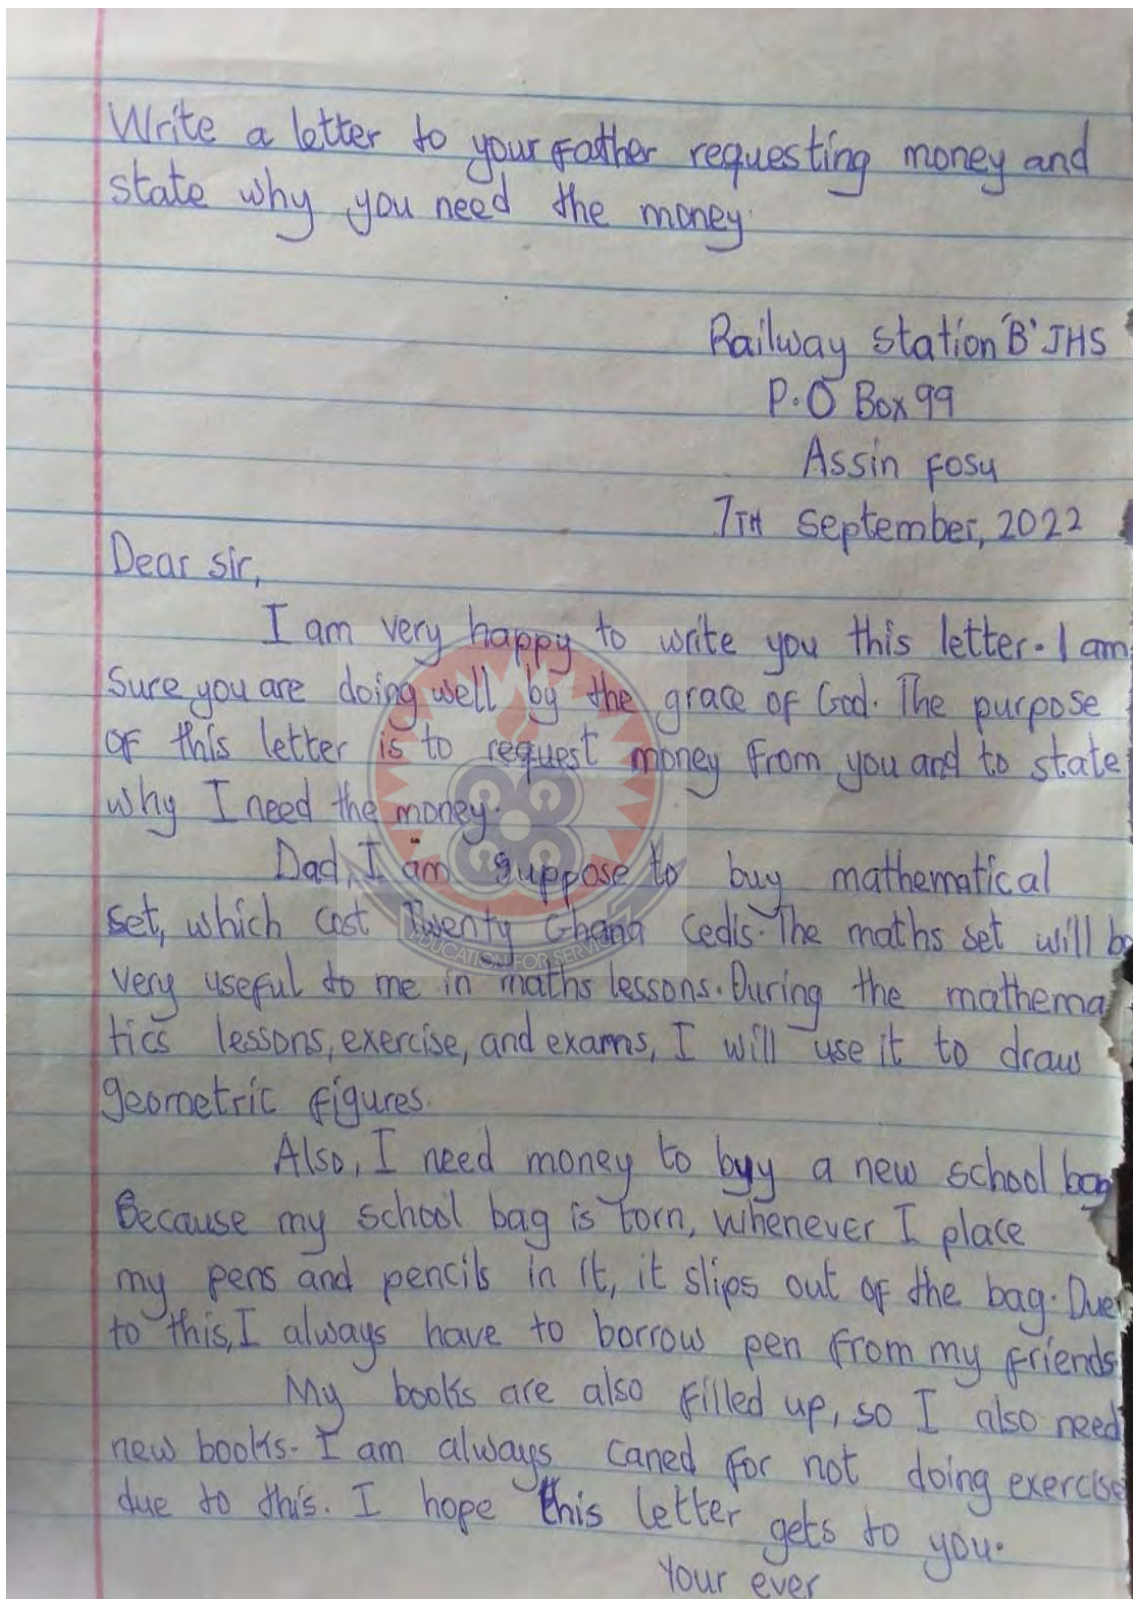 Write a letter to your Father requesting money and
state why you need the money.
Railway station 'B' JHS
P.O Box 99
Assin Fosu
7TH September, 2022
Dear sir,
I am very happy to write you this letter. I am
sure you are doing well by the grace of God. The purpose
of this letter is to request money from you and to state
why I need the money.
Dad, I am suppose to buy mathematical
set, which cost Twenty Ghana Cedis. The maths set will be
very useful to me in maths lessons. During the mathema
tics lessons, exercise, and exams, I will use it to draw
geometric figures.
Also, I need money to buy a new school bag
Because my school bag is torn, whenever I place
my pens and pencils in it, it slips out of the bag. Due
to this, I always have to borrow pen from my friends
My books are also filled up, so I also need
new books. I am always caned for not doing exercise
due to this. I hope this letter gets to you.
Your ever
EDUCATION FOR SERVICE